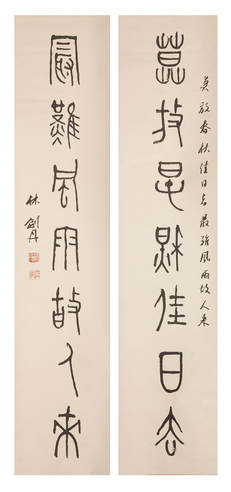 莫放春秋佳日去
莫放春秋佳日去最难风雨故人来
最難風雨故人來
林剑丹